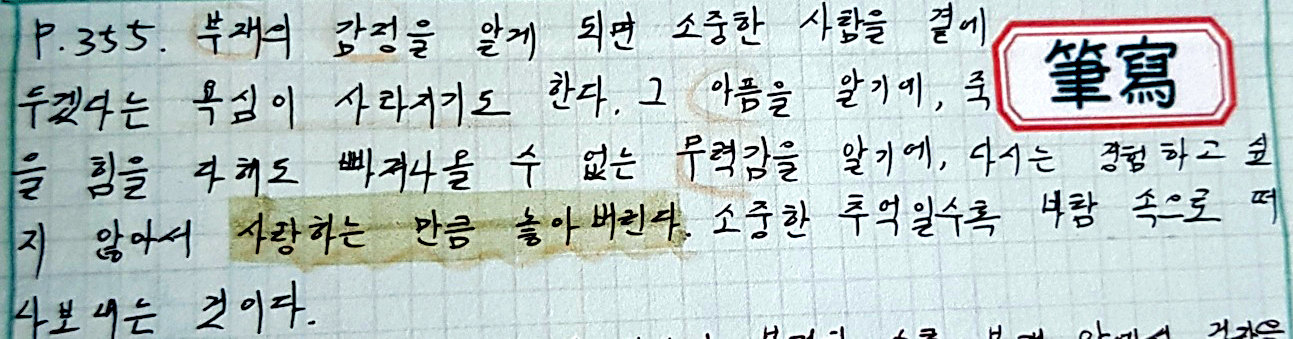 P.355. 부재의 감정을 알게 되면 소중한 사람을 곁에
두겠다는 욕심이 사라지기도 한다. 그 아픔을 알기에, 죽
筆寫
을 힘을 다해도 빠져나올 수 없는 무력감을 알기에, 다시는 경험하고 싶
지 않아서 사랑하는 만큼 놓아 버린다. 소중한 추억일수록 바람 속으로 떠
나보내는 것이다.